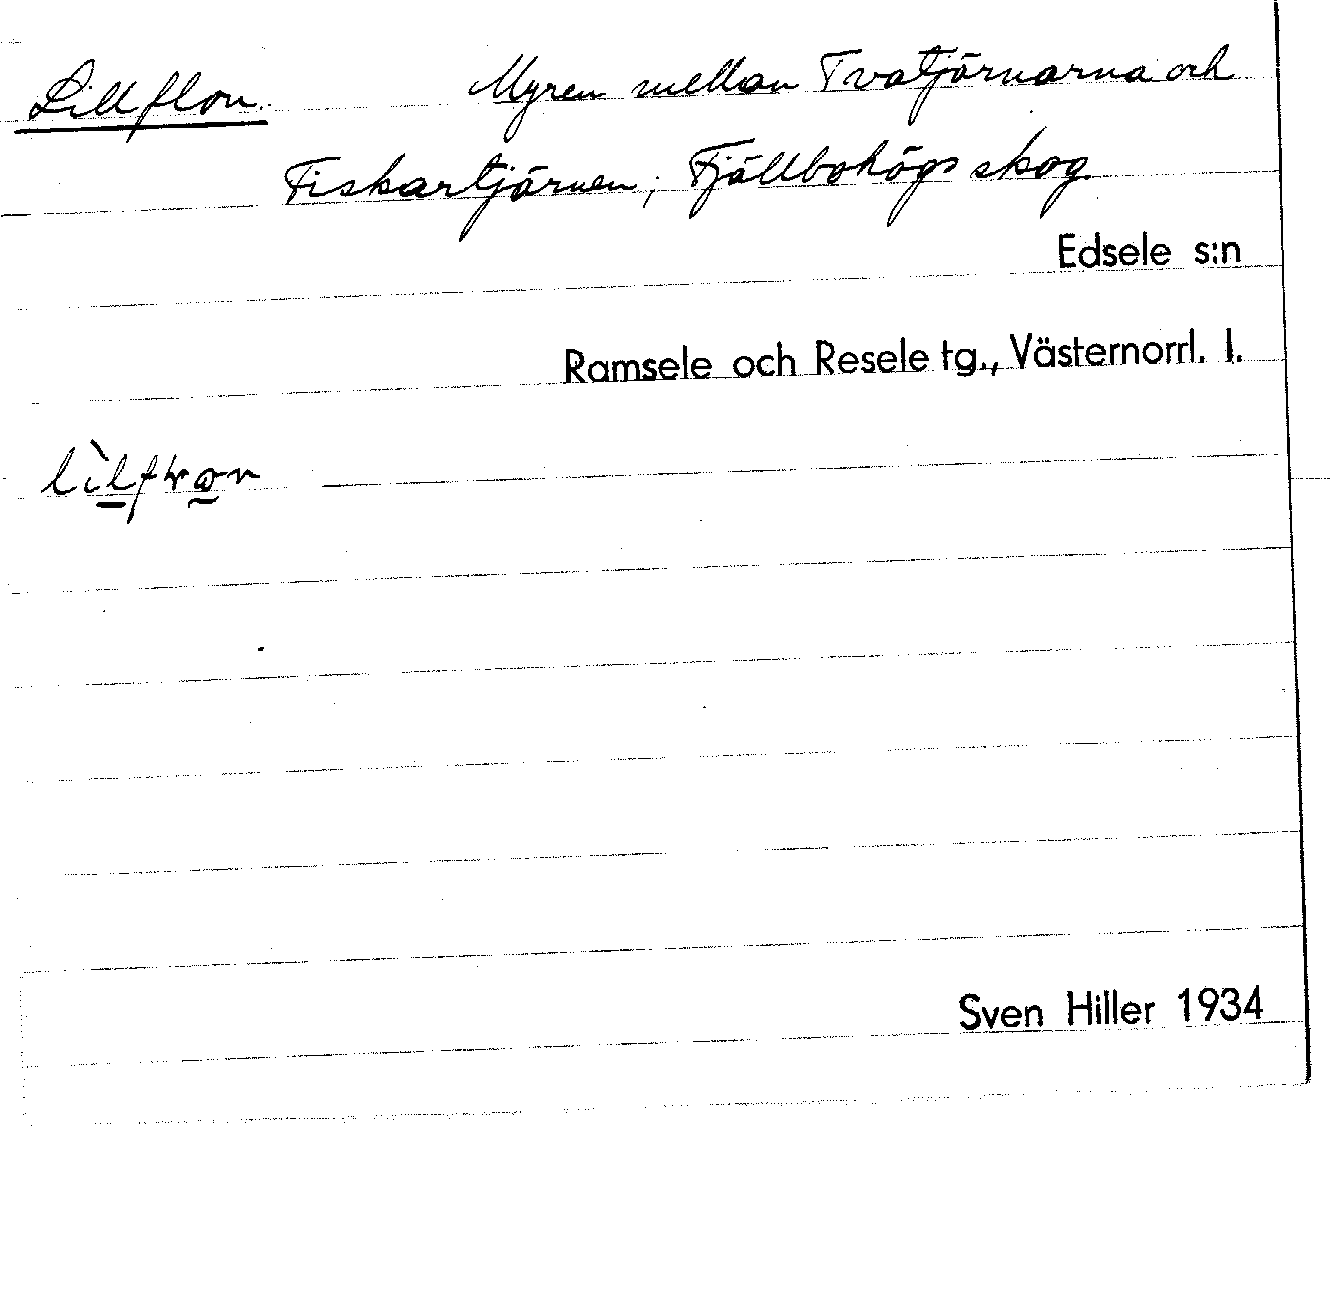 Lillflon. Myren mellan Tvatjärnarna och
Fiskartjärnen, Fjällbohögs skog
Edsele s:n
Ramsele och Resele tg., Västernorrl. l.
Sven Hiller 1934